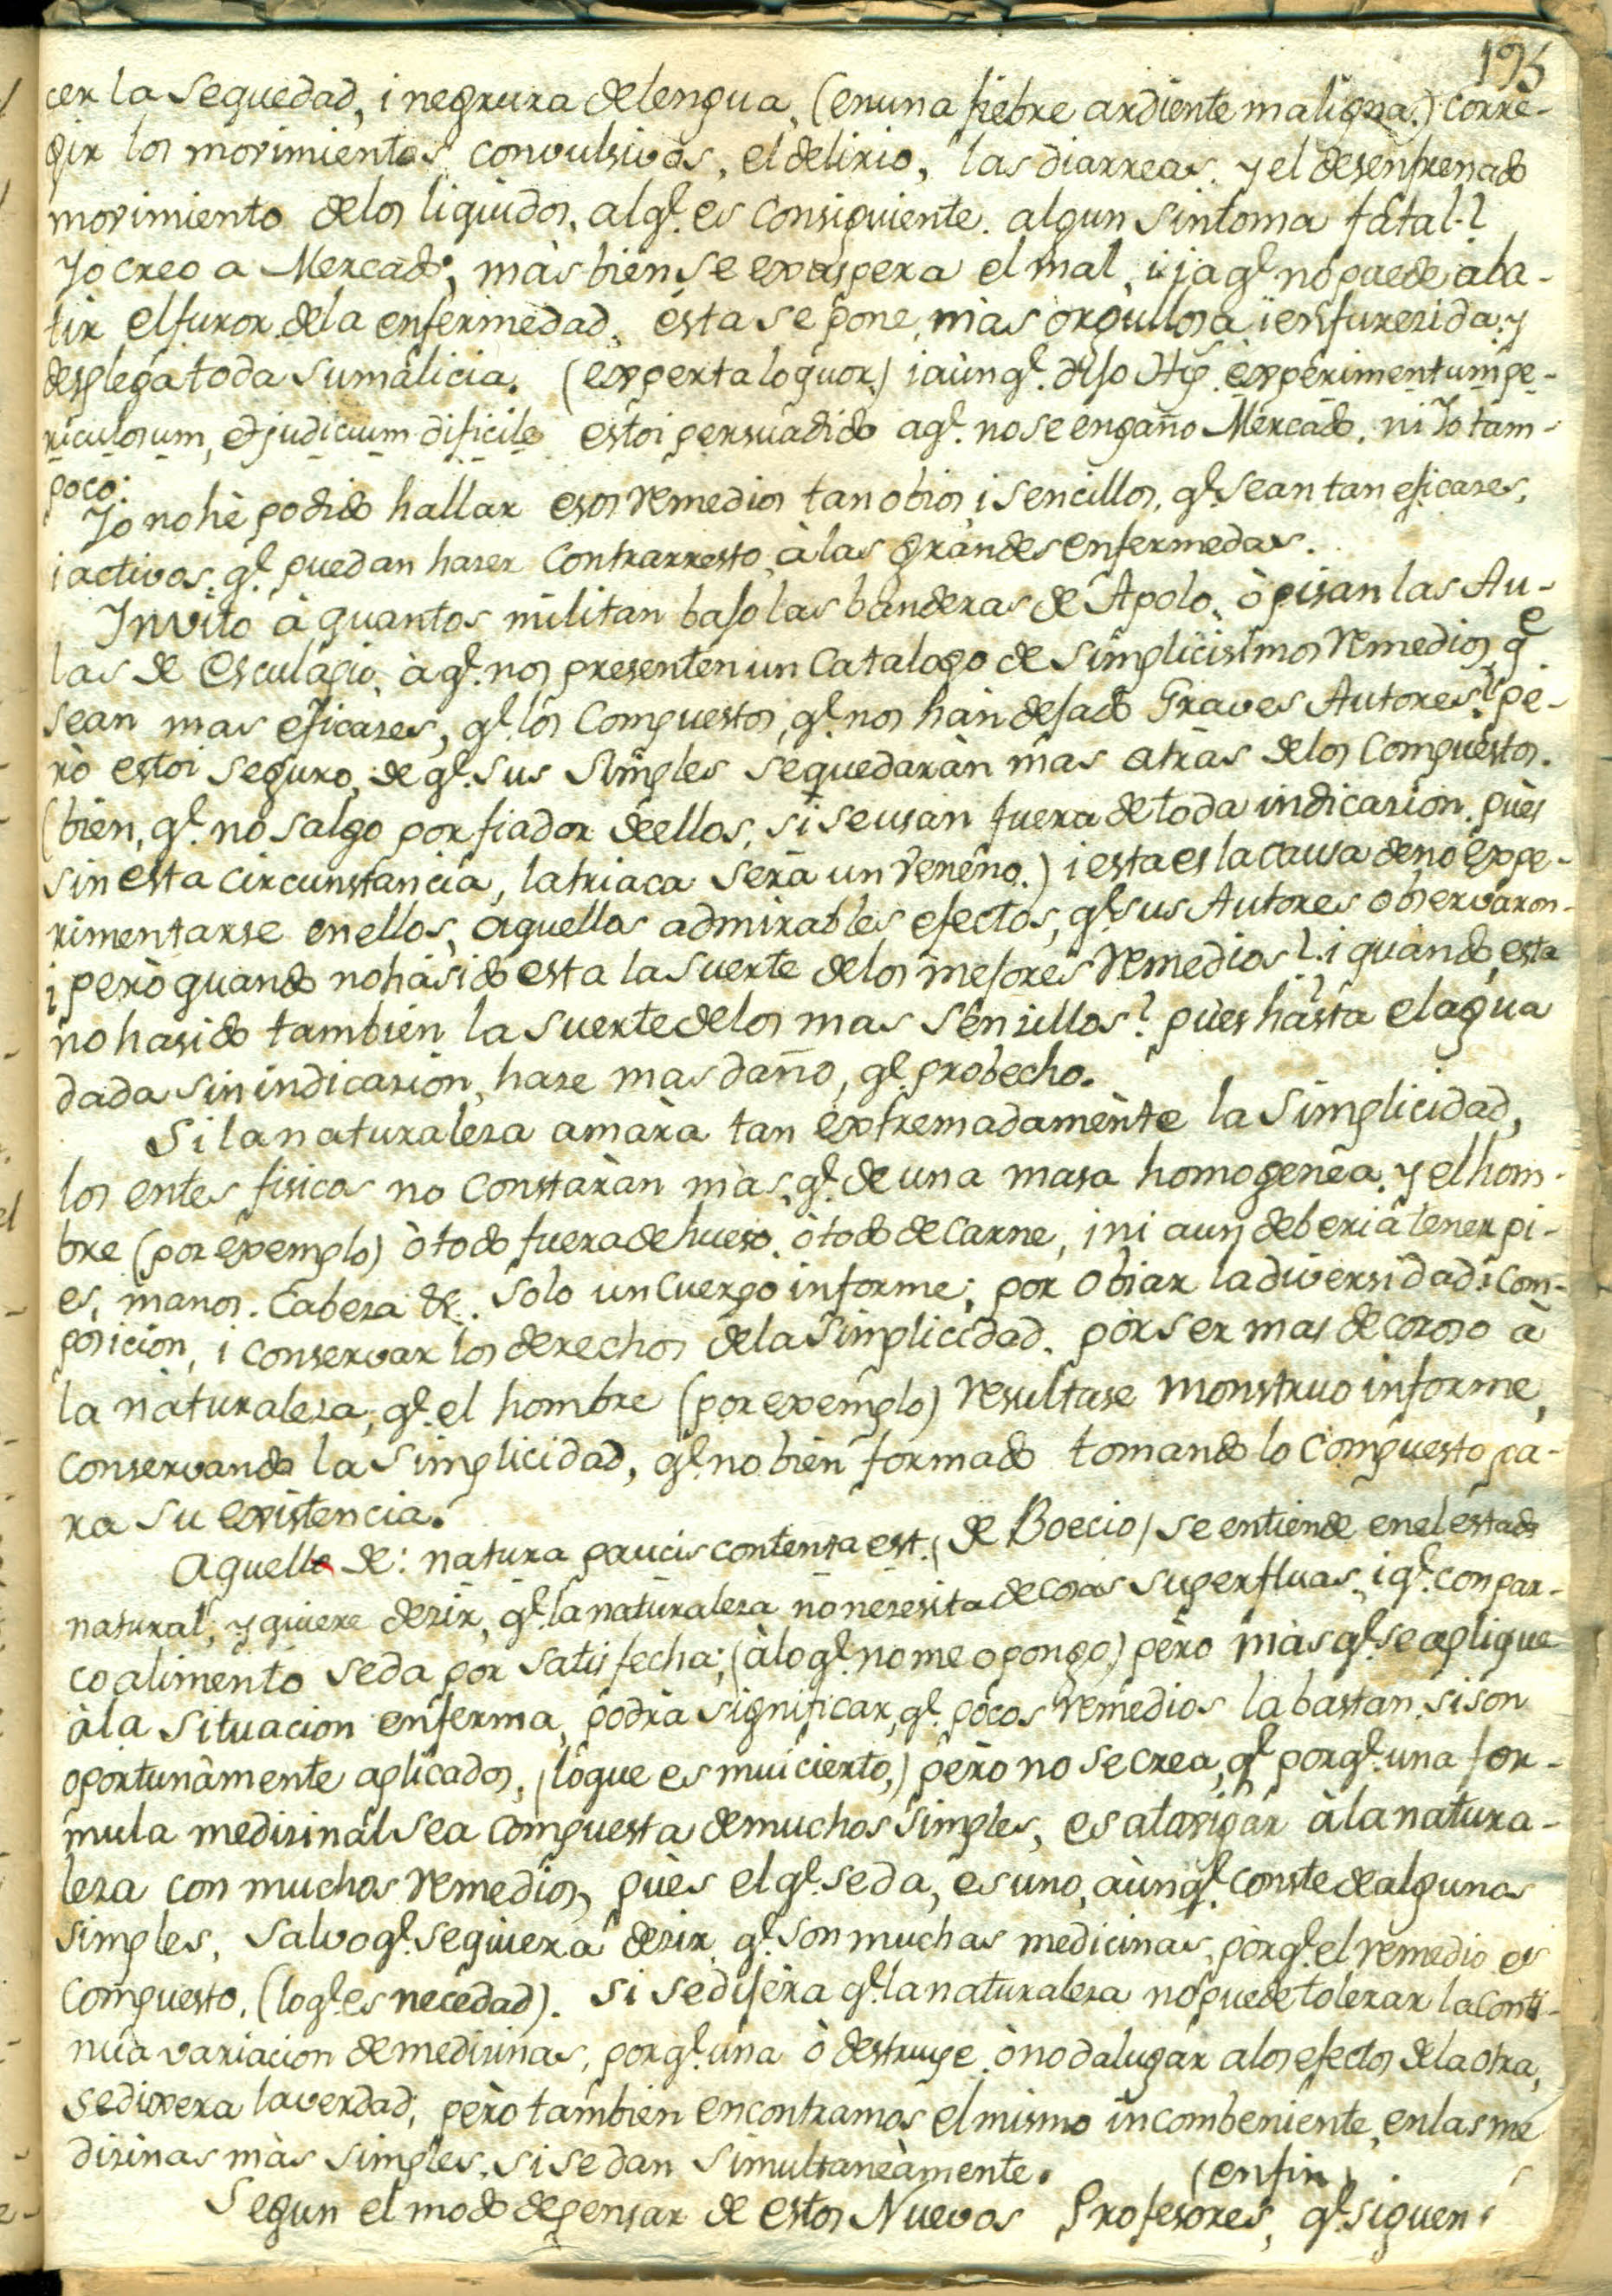 195
cer la sequedad, i negrura de lengua, (en una fiebre ardiente maligna.) corre-
gir los movimientos convulsivos, el delirio, las diarreas. y el desenfrenado
movimiento de los liquidos, al qe. es consiguiente. algun sintoma fatal.?
Yo creo a Mercado; màs bien se exaspera el mal, i ja qe. no puede aba-
tir el furor de la enfermedad, èsta se pone, màs orgullosa i enfurezida; y
desplega toda su malicia. (experta loquor.) i aùn qe. dijo Hip. experimentum pe-
riculosum, et judicium dificile estoi persuadido a qe. no se engaño Mercado, ni Yo tam-
poco:
Yo no hè podido hallar esos remedios tan obios, i sencillos, qe. sean tan eficazes,
i activos, qe. puedan hazer contrarresto, à las grandes enfermedas.
Invito à quantos militan bajo las banderas de Apolo, ò pisan las Au-
las de Esculapio, à qe. nos presenten un Catalogo de simplicisimos remedios, qe
sean mas eficazes, qe. los Compuestos, qe. nos hàn dejado Graves Autores? pe-
rò estoi seguro, de qe. sus simples se quedaràn mas atràs de los Compuestos.
(bien, qe. no salgo por fiador de ellos, si se usan fuera de toda indicazion. pùes
sin esta circunstancia, la triaca serà un veneno.) i esta es la causa de no expe-
rimentarse en ellos, aquellos admirables efectos, qe. sus Autores observaron.
¿ però quando no hà sido esta la suerte de los mejores remedios? i quando, esta
no ha sido tambien la suerte de los mas senzillos? pùes hasta el agua
dada sin indicazion, haze mas daño, qe. probecho.
Si la naturaleza amàra tan extremadamènte la simplicidad,
los entes fisicos no constaràn màs, qe. de una masa homogenèa. y el hom-
bre (por exemplo) ò todo fuera de hueso, ò todo de carne, i ni aun deberia tener pi-
es, manos. Cabeza &c. solo un cuerpo informe; por obiar la diversidad i com-
posicion, i conservar los derechos de la simplicidad. pòr ser mas decoroso à
la naturaleza, qe. el hombre (por exemplo) resultase monstruo informe,
conservando la simplicidad, qe. no bien formado tomando lo compuesto pa-
ra su existencia.
Aquello de: natura paucis contenta est. (de Boecio) se entiende en el estado
natural, y quiere dezir, qe. la naturaleza no nezesita de cosas superfluas, i qe. con par-
co alimento se da por satisfecha; (à lo qe. no me opongo) pèro màs qe. se aplique
à la situacion enferma, podrà significar, qe. pocos remedios la bastan, si son
oportunàmente aplicados, (lo que es mui cierto,) pèro no se crea, qe. por qe. una for-
mula medizinàl sea compuesta de muchos simples, es atosigàr à la natura-
leza con muchos remedios, pùes el qe. se da, es uno, aùn qe. conste de algunos
simples, salvo qe. se quiera dezir, qe. son muchas medicinas, pòr qe. el remedio es
compuesto, (lo qe. es necedad). si se dijera qe. la naturaleza no puede tolerar la conti-
nua variacion de medizinas, por qe. una ò destruye, ò no da lugàr a los efectos de la otra,
se dixera la verdad; pèro tambien encontramos el mismo incombeniente, en las me
dizinas màs simples, si se dan simultaneàmente. (en fin)
Segun el modo de pensar de estos Nuevos Profesores, qe. siguen